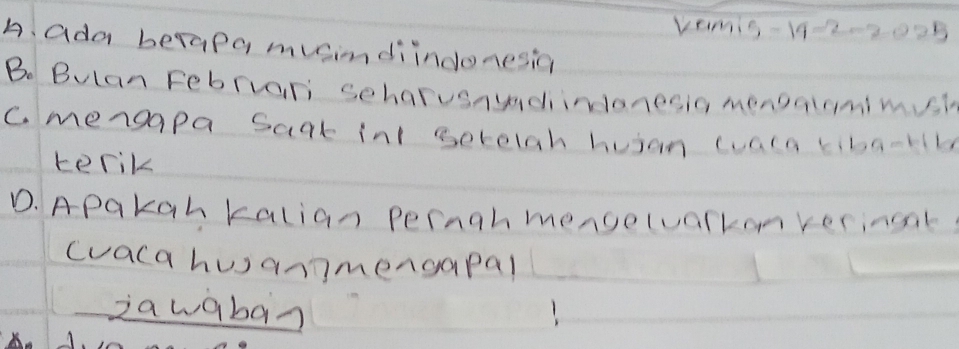 Kamis-19-2-2025
A. ada berapa musim diindonesia
B. Bulan Februari seharusnya diindonesia mengalami musi
C. mengapa saat ini setelah hujan cuaca tiba-tiba
terik
D. Apakah kalian pernah mengeluarkan keringat
cuaca hujan? mengapa!
jawaban !